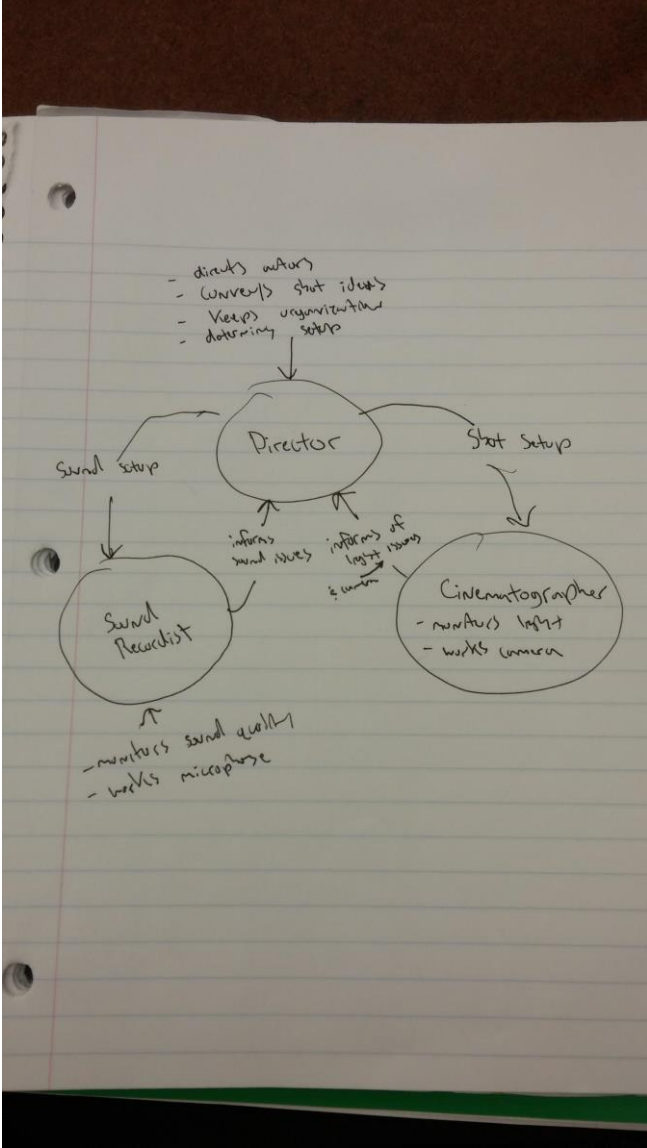 - directs actors
- conveys shot ideas
- keeps organization
- determing setup
Director
Sound setup
Shot Setup
informs
sound issues
informs of
light issues
& camera
Sound
Recordist
Cinematographer
- monitors light
- works camera
- monitors sound quality
- works microphone